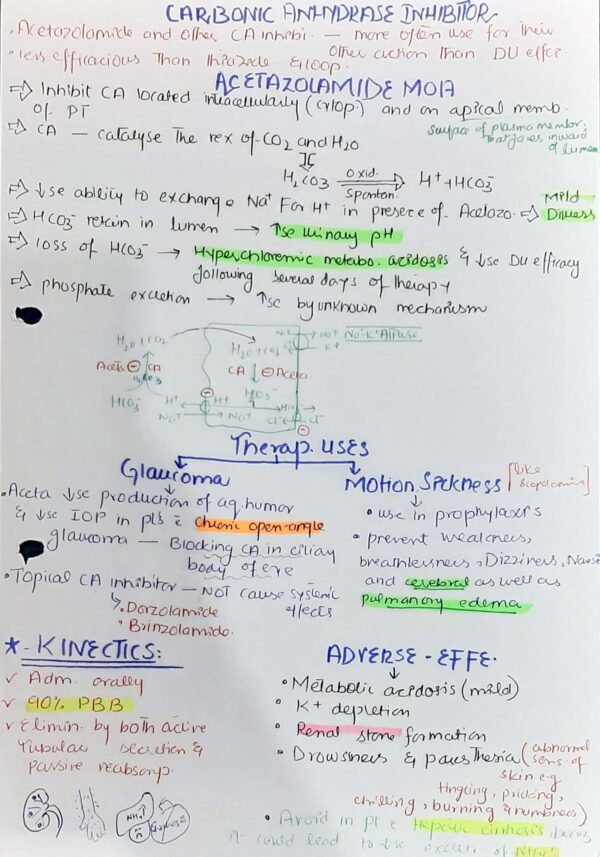 CARBONIC ANHYDRASE INHIBITOR
• Acetazolamide and other CA inhibi. — more often use for their
other action than DU effec
• less efficacious than thiazide & loop.
ACETAZOLAMIDE MOA
⇒ Inhibit CA located intracellularly (cytop.) and on apical memb.
of PT
surface of plasma membr.
that faces inward
of lumen
⇒ CA — catalyse the rex of CO2 and H2O
H2CO3 oxid. spontan. H+ + HCO3-
⇒ ↓se ability to exchange Na+ for H+ in presece of Acetazo. ⇒ Mild
Diuress
⇒ HCO3- retain in lumen → ↑se urinary pH
⇒ loss of HCO3- → Hyperchloremic metabo. acidosis & ↓se DU efficacy
following several days of therapy
⇒ phosphate excretion → ↑se by unknown mechanism
H2O + CO2
H2O + CO2
Na+
K+
Na+-K+ ATPase
Aceta ⊖ CA
H2CO3
CA ↓ ⊖ Aceta
HCO3-
H+
H+
Na+
Na+
Cl-
Therap. USES
Glaucoma
• Aceta ↓se production of aq. humor
& ↓se IOP in pts c̄ chronic open-angle
glaucoma — Blocking CA in ciliary
body of eye
• Topical CA inhibitor — NOT cause systemic
effects
• Dorzolamide
• Brinzolamide.
Motion Sickness [like
scopolamine]
• use in prophylaxis
• prevent weakness,
breathlessness, Dizziness, Nause
and cerebral as well as
pulmanory edema
* - KINECTICS:
✓ Adm. orally
✓ 90% PBB
✓ Elimin. by both active
tubular secretion &
passive reabsorp.
NH4+
ADVERSE - EFFE.
• Metabolic acidosis (mild)
• K+ depletion
• Renal stone formation
• Drowsness & paresthesia (abnormal
sens. of
skin e.g
tingling, pricking,
chilling, burning & numbness)
• Avoid in pt c̄ Hepatic cirrhosis,
it could lead to ↓se excret. of NH4+